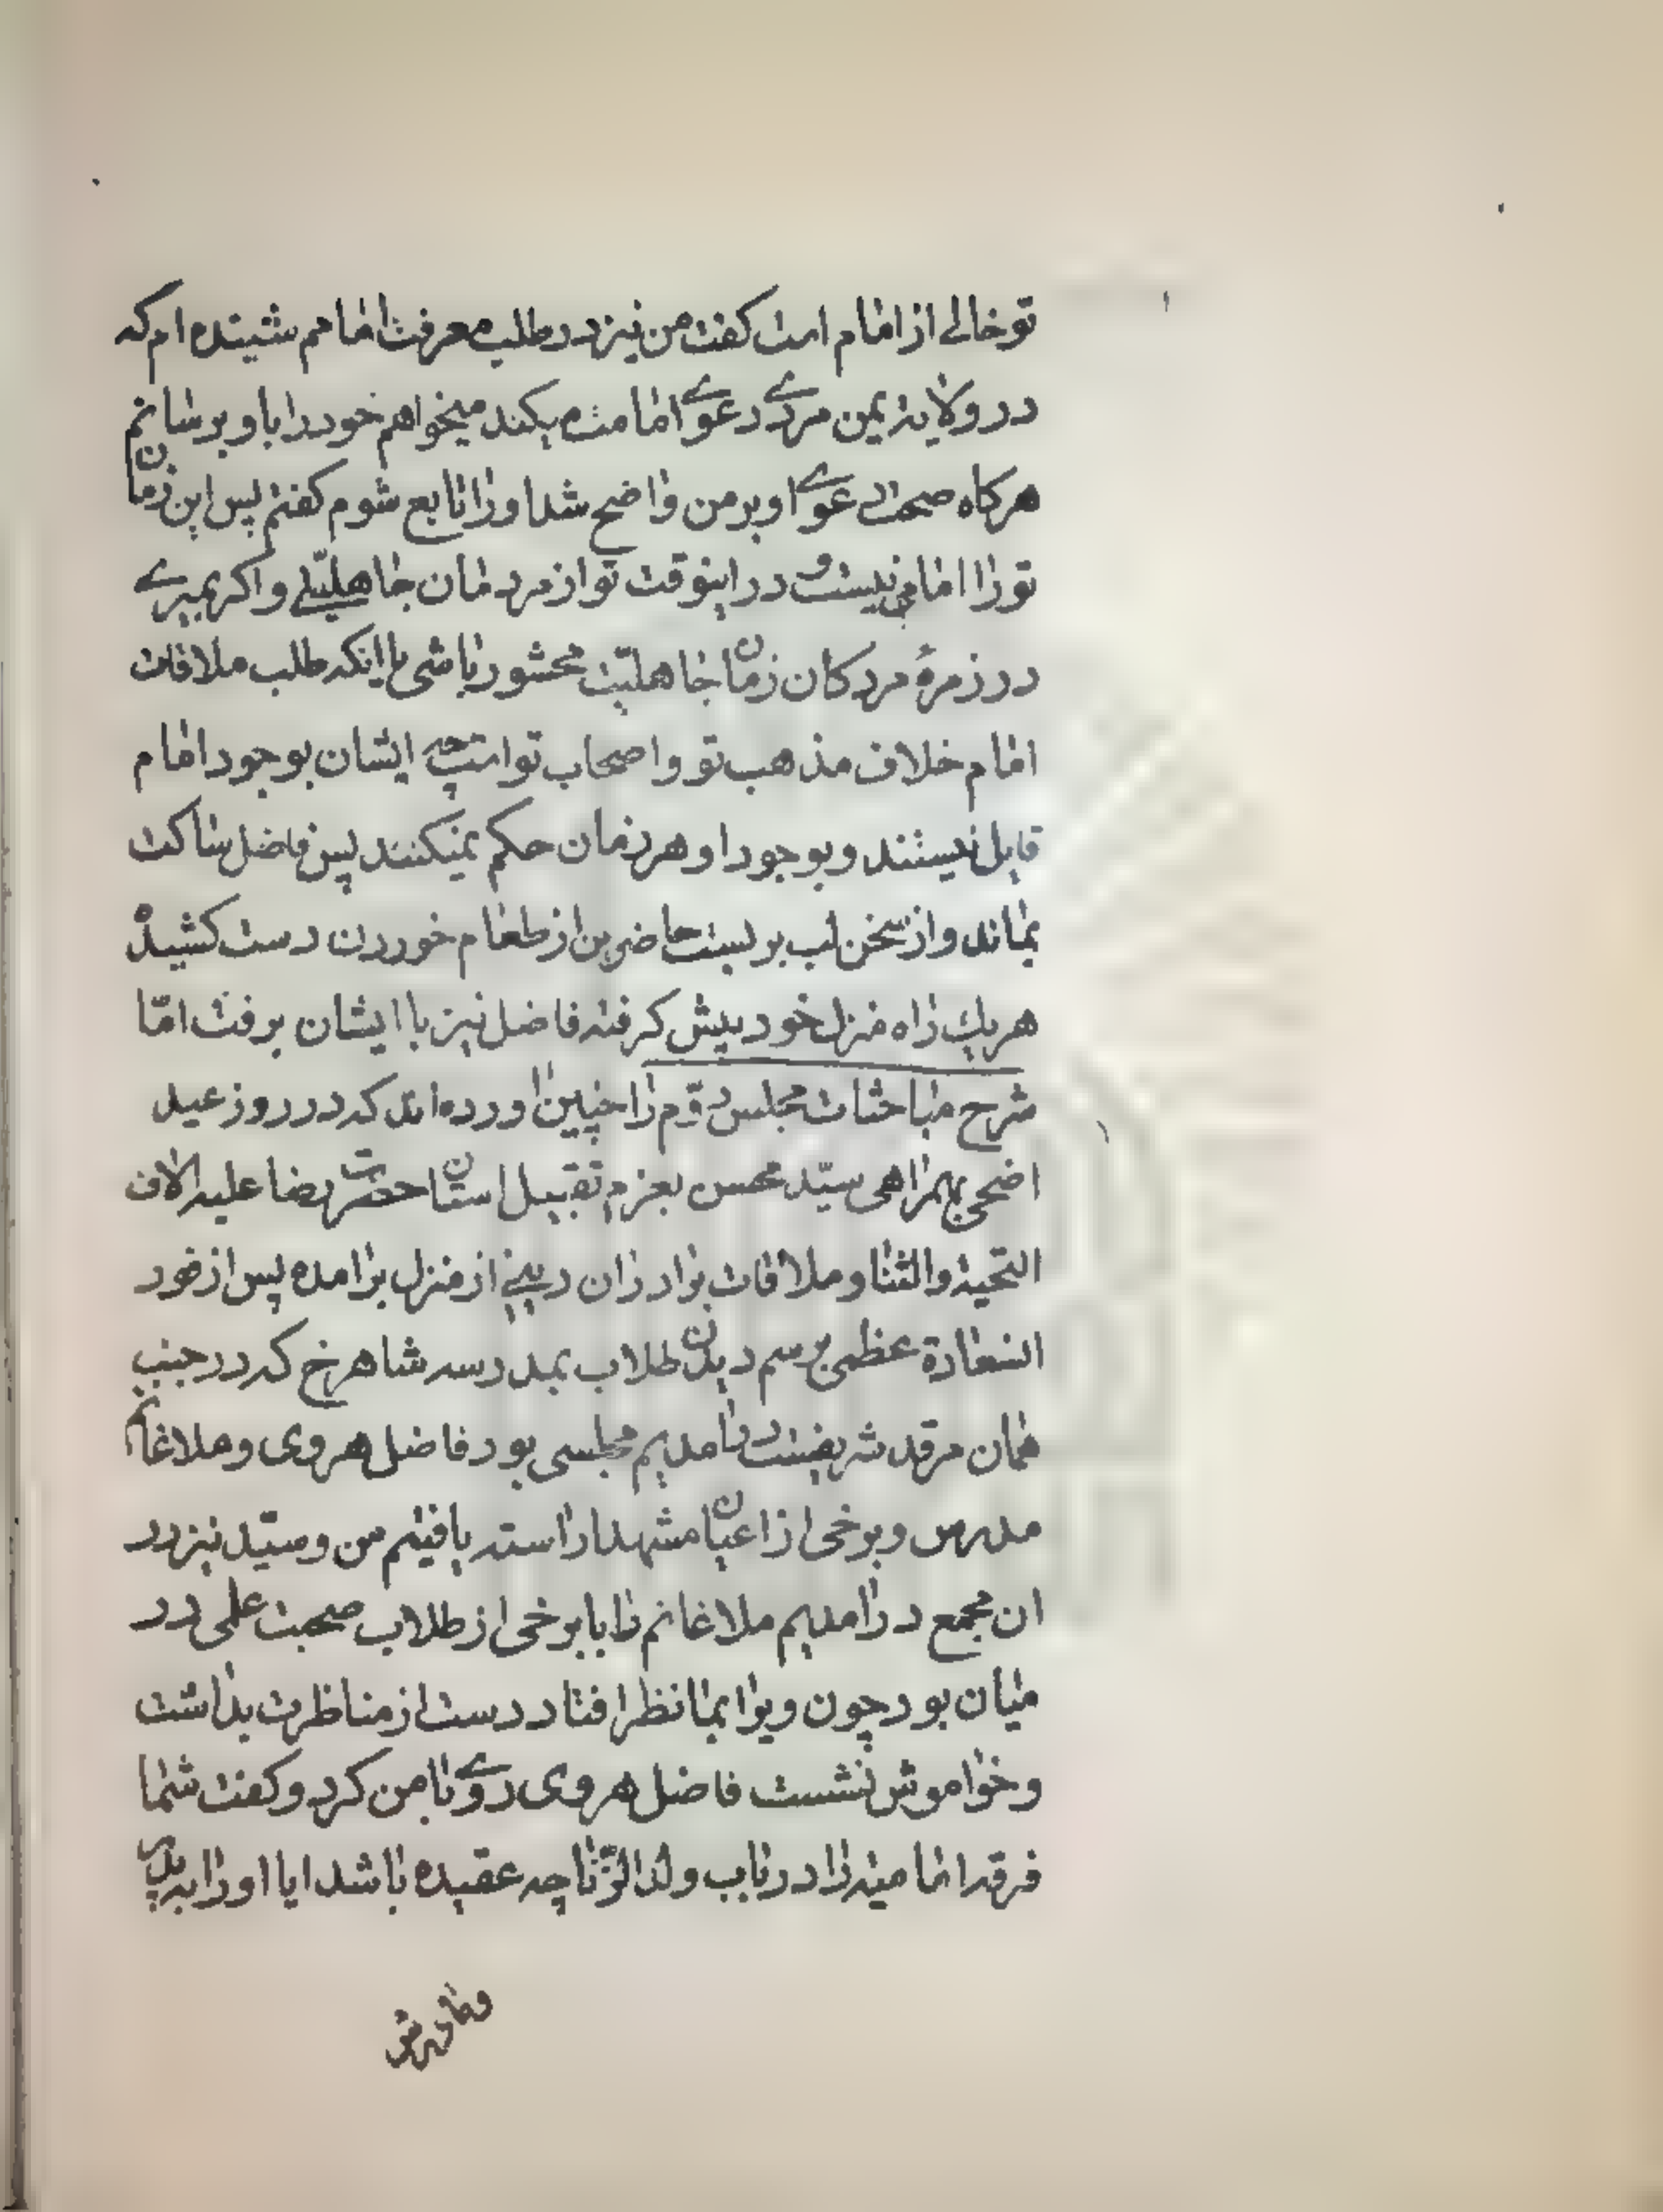 تو خالی از امام است کفت من نیز در طلب معرفت امامم شنیده ام که
در ولایة یمن مردے دعوے امامت میکند میخواهم خود را باو برسانم
هرکاه صحت دعوے او بر من واضح شد او را تابع شوم کفتم پس این زمان
تو را امامی نیست و در اینوقت تو از مردمان جاهلیّتے و اکر بمیرے
در زمرهٔ مردکان زمان جاهلیّت محشور باشی با اینکه طلب ملاقات
امام خلاف مذهب تو و اصحاب تو است چه ایشان بوجود امام
قایل نیستند و بوجود او هر زمان حکم نمیکنند پس فاضل ساکت
بماند و از سخن لب بر بست حاضرین از طعام خوردن دست کشیده
هریك راه منزل خود پیش کرفته فاضل نیز با ایشان برفت امّا
شرح مباحثات مجلس دوّم را چنین آورده اند که در روز عید
اضحی بهمراهی سیّد محسن بعزم تقبیل استان حضرت رضا علیه الاف
التحیة والثنا و ملاقات برادران دینے از منزل برامده پس از فوز
السعادة عظمی برسم دیدن طلاب بمدرسه شاهرخ که در جنب
همان مرقد شریفست درامدیم مجلسی بود فاضل هروی و ملا غانم
مدرس و برخی از اعیان مشهد اراسته یافتیم من و سیّد نیز در
ان مجمع درامدیم ملا غانم را با برخی از طلاب صحبت علمی در
میان بود چون ویرا بما نظر افتاد دست از مناظرت بداشت
و خواموش نشست فاضل هروی روے با من کرد و کفت شما
فرقه امامیه را در باب ولد الزّنا چه عقیده باشد ایا او را بد